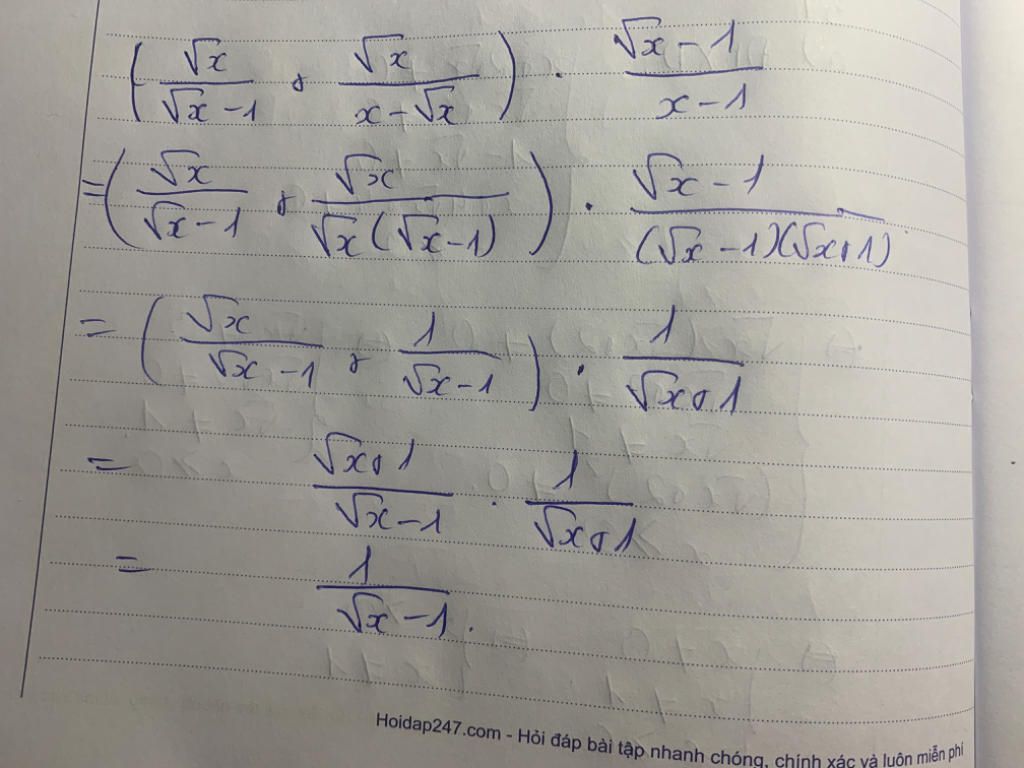 (√x/(√x-1) + √x/(x-√x)) . (√x-1)/(x-1)
=(√x/(√x-1) + √x/(√x(√x-1))) . (√x-1)/((√x-1)(√x+1))
= (√x/(√x-1) + 1/(√x-1)) . 1/(√x+1)
= (√x+1)/(√x-1) . 1/(√x+1)
= 1/(√x-1).
Hoidap247.com - Hỏi đáp bài tập nhanh chóng, chính xác và luôn miễn phí